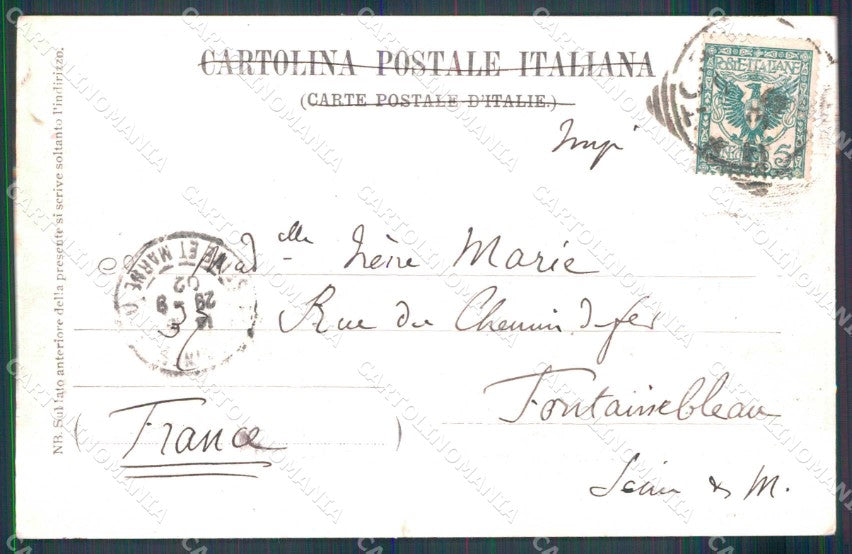 CARTOLINA POSTALE ITALIANA
(CARTE POSTALE D'ITALIE.)
POSTE ITALIANE
5
Mad elle Irène Marie
37 Rue du Chemin de fer
Fontainebleau
Seine & M.
(France)
NB. Sul lato anteriore della presente si scrive soltanto l'indirizzo.
ET MARNE
29 9
02
CARTOLINOMANIA